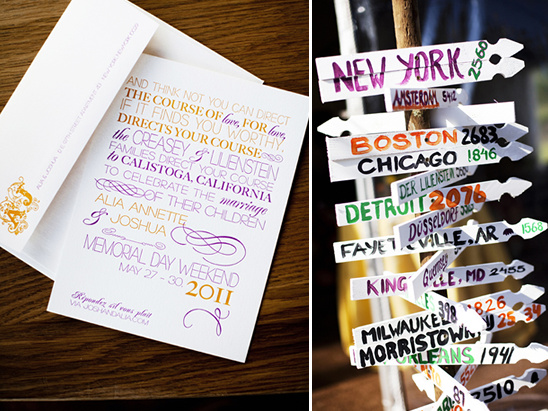 AND THINK NOT YOU CAN DIRECT
THE COURSE OF love, FOR love,
IF IT FINDS YOU WORTHY,
DIRECTS YOUR COURSE
the CREASEY & LILIENSTEIN
FAMILIES DIRECT YOUR COURSE
to CALISTOGA, CALIFORNIA
TO CELEBRATE THE marriage
OF THEIR CHILDREN
ALIA ANNETTE
& JOSHUA
MEMORIAL DAY WEEKEND
MAY 27 - 30, 2011
Répondez s'il vous plaît
VIA JOSHANDALIA.COM
NEW YORK 2560
AMSTERDAM 5412
BOSTON 2683
CHICAGO 1846
DER LILENSTEIN
DETROIT 2076
DÜSSELDORF
FAYETTEVILLE, AR 1568
KING VILLE, MD 2455
1826
MILWAUKEE
2534
MORRISTOWN
ORLEANS 1941